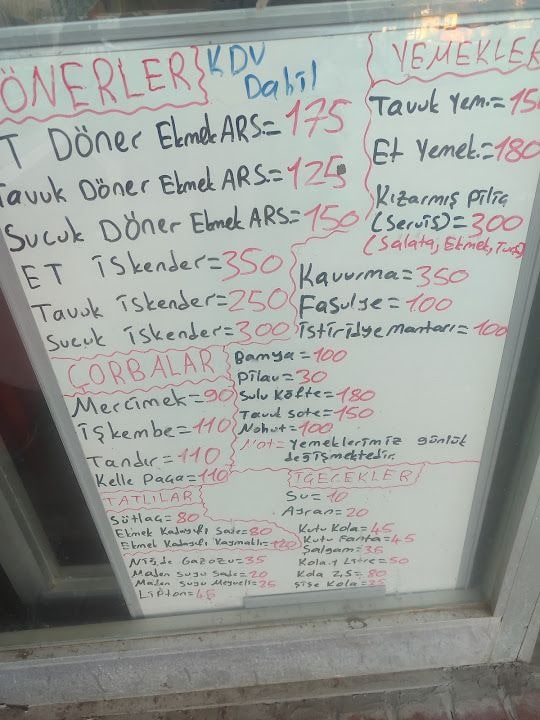 ÖNERLER
KDV
Dahil
T Döner Ekmek ARS.=175
Tavuk Döner Ekmek ARS.=125
Sucuk Döner Ekmek ARS=150
ET İskender=350
Tavuk İskender=250
Sucuk İskender=300
YEMEKLER
Tavuk Yem.=150
Et Yemek.=180
Kızarmış Piliç
(Servis)=300
(Salata, Ekmek, Turş)
Kavurma=350
Fasulye=100
İstiridye mantarı=100
Bamya=100
Pilav=30
Sulu Köfte=180
Tavuk Sote=150
Nohut=100
Not= Yemeklerimiz günlük
değişmektedir.
ÇORBALAR
Mercimek=90
İşkembe=110
Tandır=110
Kelle Paça=110
TATLILAR
Sütlaç=80
Ekmek Kadayıfı Sade=80
Ekmek Kadayıfı Kaymaklı=120
Niğde Gazozu=35
Maden Suyu Sade=20
Maden Suyu Meyveli=25
Lipton=45
İÇECEKLER
Su=10
Ayran=20
Kutu Kola=45
Kutu Fanta=45
Şalgam=35
Kola 1 Litre=50
Kola 2,5=80
Şişe Kola=35